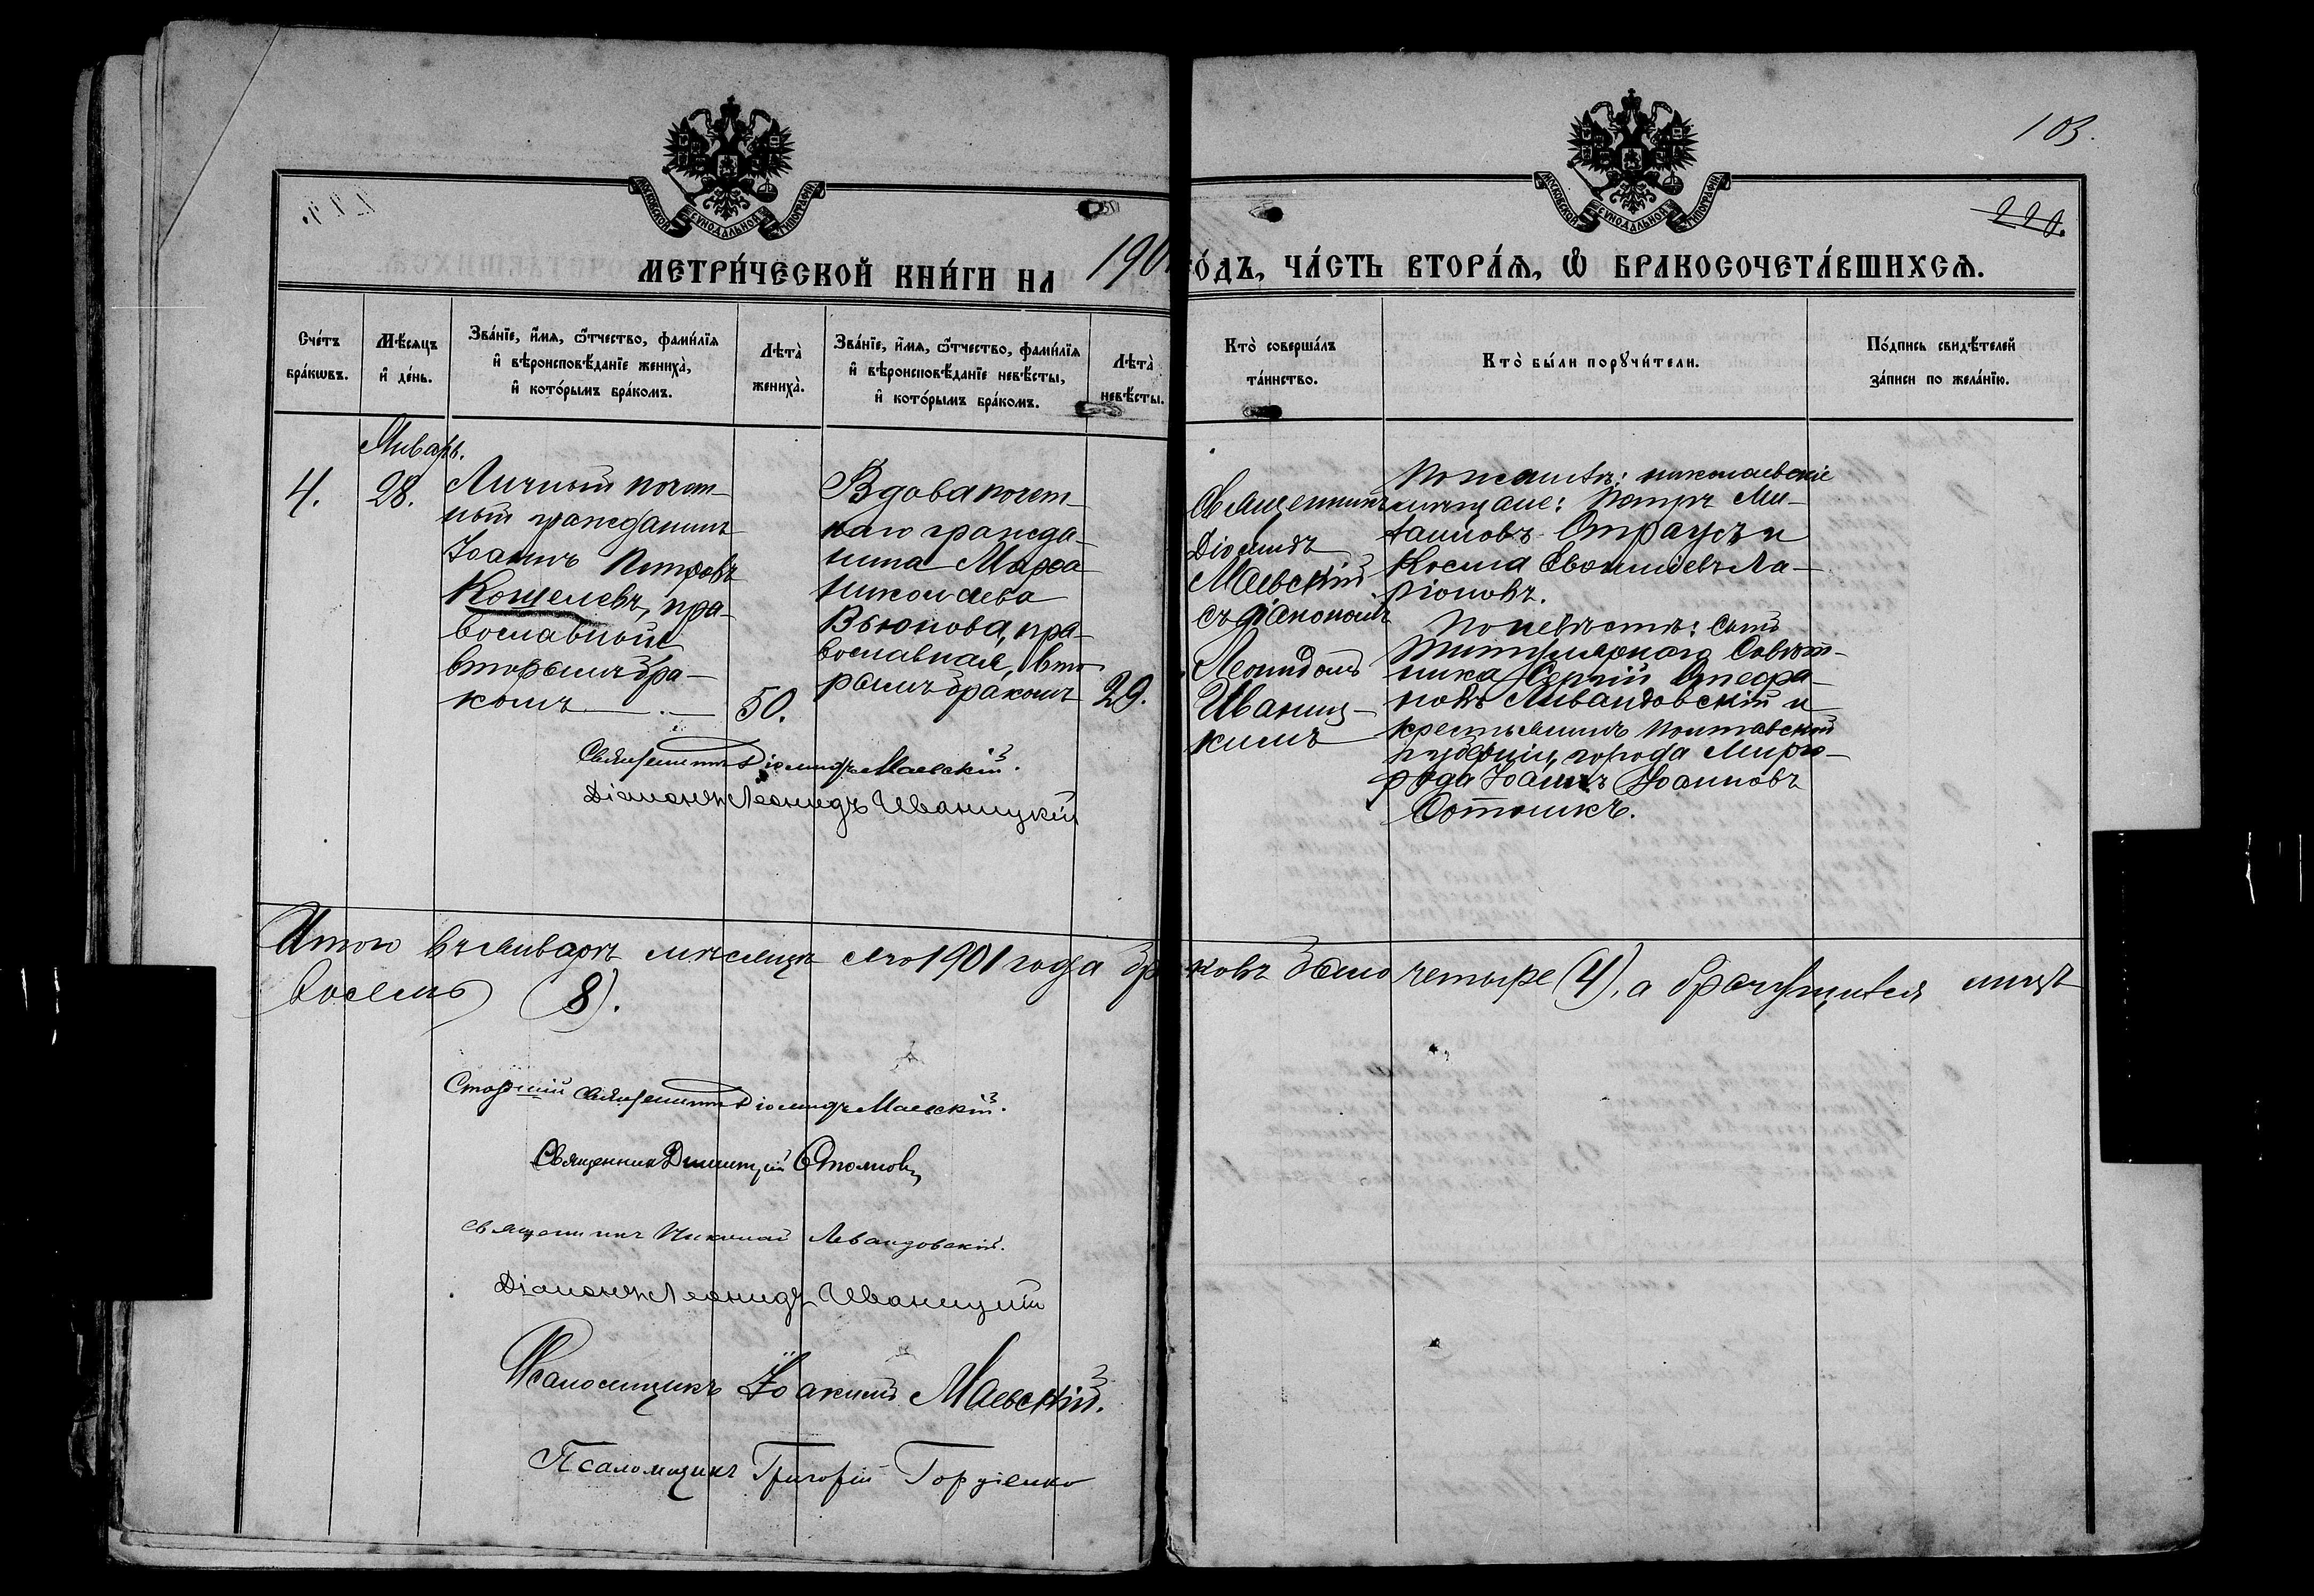 103.
220.
МОСКОВСКОЙ СѴНОДАЛЬНОЙ ТИПОГРАФІИ
МОСКОВСКОЙ СѴНОДАЛЬНОЙ ТИПОГРАФІИ
МЕТРИ́ЧЕСКОЙ КНИ́ГИ НА 190
О́ДЪ, ЧА́СТЬ ВТОРА́Ѧ, Ѽ БРАКОСОЧЕТА́ВШИХСѦ.
Сче́тъ
бра́кѡвъ.
Мѣ́сяцъ
и҆ де́нь.
Зва́нїе, и҆́мѧ, ѻ҆́тчество, фами́лїѧ
и҆ вѣроисповѣ́данїе жениха̀,
и҆ кото́рымъ бра́комъ.
Лѣта̀
жениха̀.
Зва́нїе, и҆́мѧ, ѻ҆́тчество, фами́лїѧ
и҆ вѣроисповѣ́данїе невѣ́сты,
и҆ кото́рымъ бра́комъ.
Лѣта̀
невѣ́сты.
Кто̀ соверша́лъ
та́инство.
Кто̀ бы́ли порꙋчи́тели.
По́дпись свидѣ́телей
за́писи по жела́нїю.
Январь.
4.
28.
Личный почет-
ный гражданинъ
Іоаннъ Петровъ
Кошелевъ, пра-
вославный
вторымъ бра-
комъ
50.
Вдова почет-
наго гражда-
нина Марѳа
Николаева
Вьюнова, пра-
вославная, вто-
рымъ бракомъ
29.
Священникъ
Діомидъ
Маевскій
съ діакономъ
Леонидомъ
Иваниц-
кимъ
По женихѣ: николаевскіе
мѣщане: Петръ Ми-
хаиловъ Страусъ и
Косма Евѳиміевъ Ла-
ріоновъ.
По невѣстѣ: Сынъ
Титулярнаго Совѣт-
ника Сергій Стефа-
новъ Левандовскій и
крестьянинъ Полтавской
губерніи, города Мирго-
рода Іоаннъ Іоанновъ
Сотникъ.
Священникъ Діомидъ Маевскій.
Діаконъ Леонидъ Иваницкій
Итого въ январѣ мѣсяцѣ сего 1901 года браковъ было четыре (4), а брачущихся лицъ
восемь (8).
Старшій священникъ Діомидъ Маевскій.
Священник Димитрій Стояновъ
священникъ Николай Левандовскій.
Діаконъ Леонидъ Иваницкій
Псаломщикъ Іоакимъ Маевскій.
Псаломщикъ Григорій Гордіенко